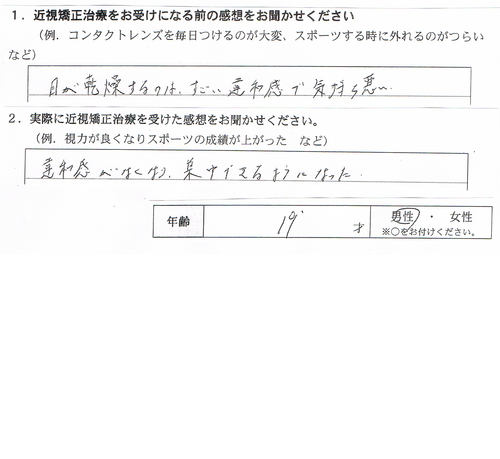 1．近視矯正治療をお受けになる前の感想をお聞かせください
（例．コンタクトレンズを毎日つけるのが大変、スポーツする時に外れるのがつらい
など）
目が乾燥するのは、すごい違和感で気持ち悪い。
2．実際に近視矯正治療を受けた感想をお聞かせください。
（例．視力が良くなりスポーツの成績が上がった　など）
違和感がなくなり、集中できるようになった。
年齢 19 才 男性 ・ 女性
※○をお付けください。